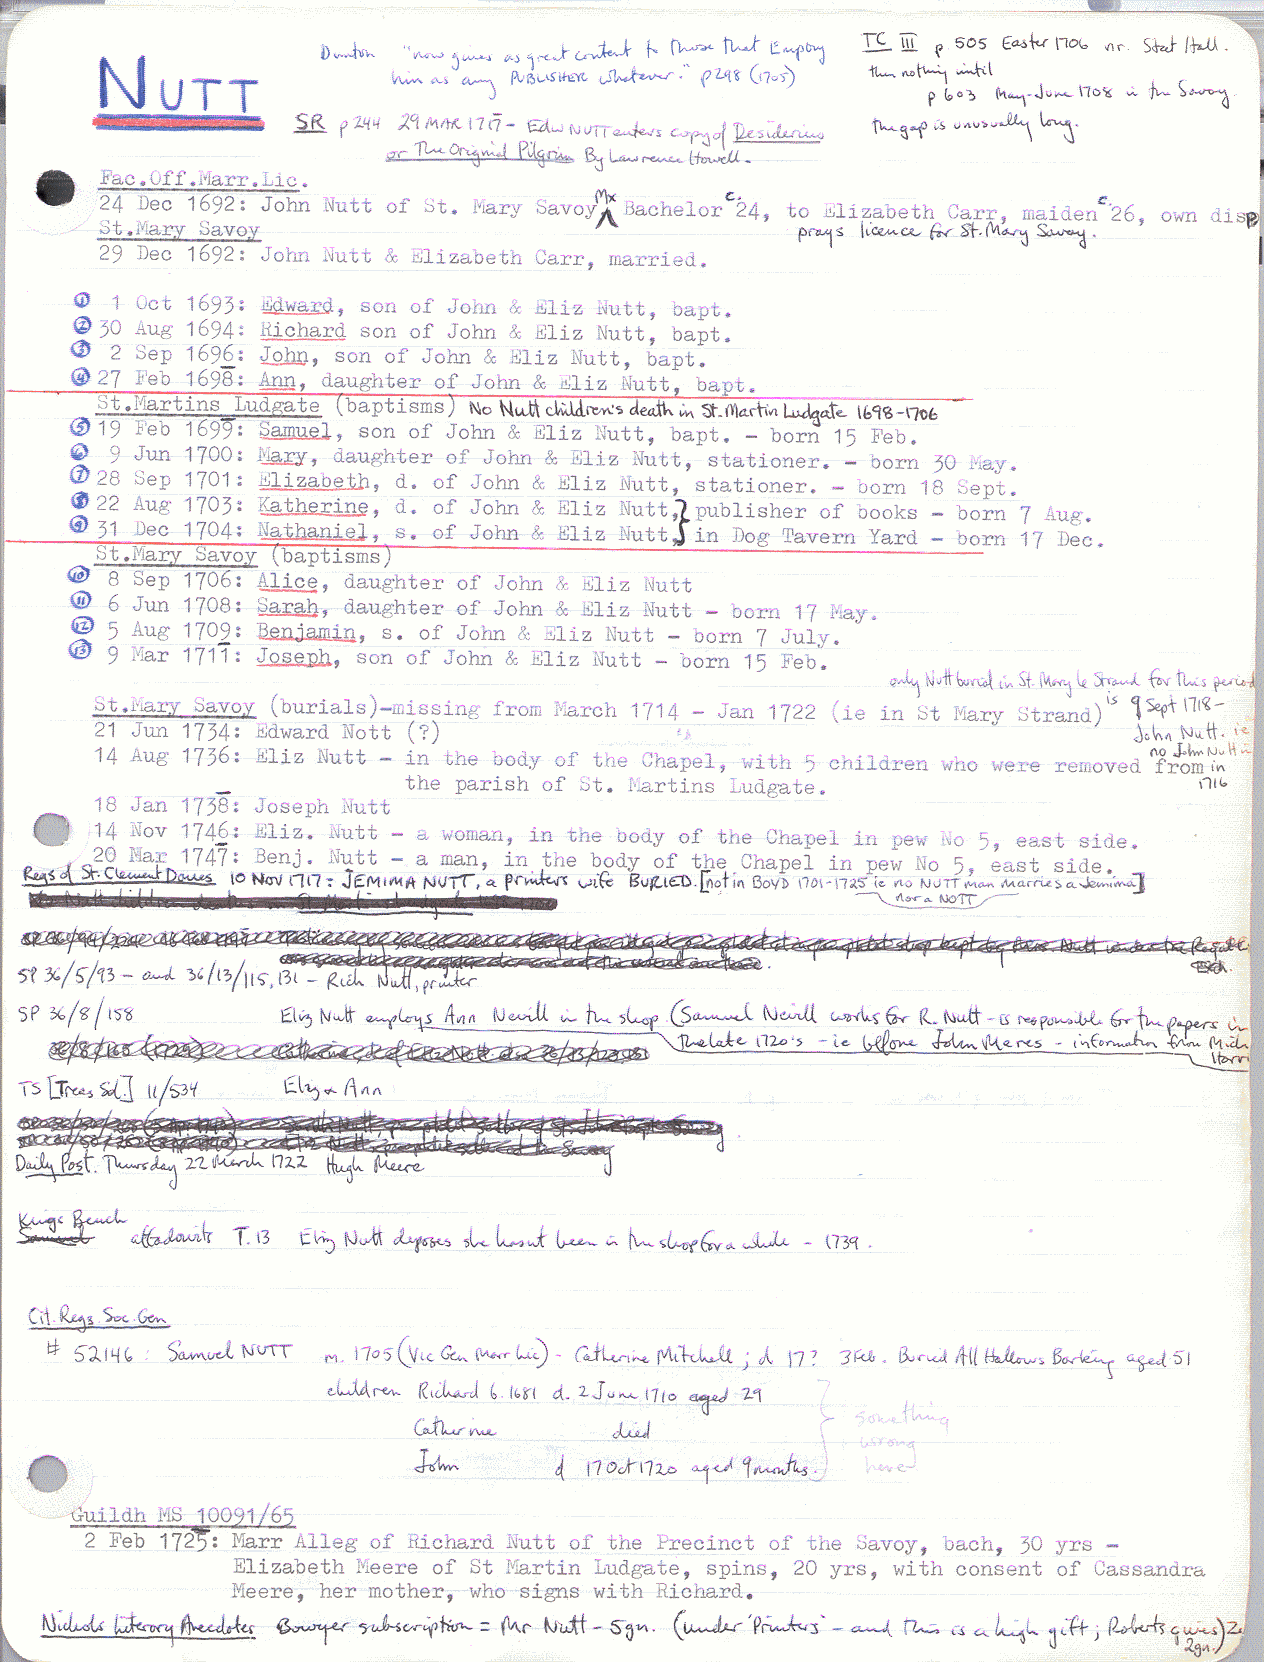 NUTT
Dunton "now gives as great content to those that Employ
him as any PUBLISHER whatever." p298 (1705)
TC III p. 505 Easter 1706 nr. Stat Hall.
then nothing until
p 603 May-June 1708 in the Savoy
the gap is unusually long.
SR p244 29 MAR 1717 - Edw NUTT enters copy of Desiderius
or The Original Pilgrim By Lawrence Howell.
Fac.Off.Marr.Lic.
24 Dec 1692: John Nutt of St. Mary Savoy Mx Bachelor c. 24, to Elizabeth Carr, maiden c. 26, own disp
prays licence for St. Mary Savoy.
St.Mary Savoy
29 Dec 1692: John Nutt & Elizabeth Carr, married.
1 1 Oct 1693: Edward, son of John & Eliz Nutt, bapt.
2 30 Aug 1694: Richard son of John & Eliz Nutt, bapt.
3 2 Sep 1696: John, son of John & Eliz Nutt, bapt.
4 27 Feb 1698: Ann, daughter of John & Eliz Nutt, bapt.
St.Martins Ludgate (baptisms) No Nutt children's death in St. Martin Ludgate 1698-1706
5 19 Feb 1699: Samuel, son of John & Eliz Nutt, bapt. - born 15 Feb.
6 9 Jun 1700: Mary, daughter of John & Eliz Nutt, stationer. - born 30 May.
7 28 Sep 1701: Elizabeth, d. of John & Eliz Nutt, stationer. - born 18 Sept.
8 22 Aug 1703: Katherine, d. of John & Eliz Nutt,} publisher of books - born 7 Aug.
9 31 Dec 1704: Nathaniel, s. of John & Eliz Nutt} in Dog Tavern Yard - born 17 Dec.
St.Mary Savoy (baptisms)
10 8 Sep 1706: Alice, daughter of John & Eliz Nutt
11 6 Jun 1708: Sarah, daughter of John & Eliz Nutt - born 17 May.
12 5 Aug 1709: Benjamin, s. of John & Eliz Nutt - born 7 July.
13 9 Mar 1711: Joseph, son of John & Eliz Nutt - born 15 Feb.
only Nutt burial in St. Mary le Strand for this period
is 9 Sept 1718 -
John Nutt. ie
no John Nutt in
in
1716
St.Mary Savoy (burials)-missing from March 1714 - Jan 1722 (ie in St Mary Strand)
21 Jun 1734: Edward Nott (?)
14 Aug 1736: Eliz Nutt - in the body of the Chapel, with 5 children who were removed from
the parish of St. Martins Ludgate.
18 Jan 1738: Joseph Nutt
14 Nov 1746: Eliz. Nutt - a woman, in the body of the Chapel in pew No 5, east side.
20 Mar 1747: Benj. Nutt - a man, in the body of the Chapel in pew No 5, east side.
Regs of St. Clement Danes 10 NOV 1717: JEMIMA NUTT, a printers wife BURIED. [not in BOYD 1701-1725 ie no NUTT man marries a Jemima]
nor a NOTT
SP 36/5/93 - and 36/13/115, 131 - Rich Nutt, printer
SP 36/8/158 Eliz Nutt employs Ann Nevill in the shop (Samuel Nevill works for R. Nutt - is responsible for the papers in
the late 1720's - ie before John Meres - information from Mich
Harri
TS [Treas Sol.] 11/534 Eliz & Ann
Daily Post. Thursday 22 March 1722 Hugh Meere
Kings Bench
affadavits T.13 Eliz Nutt deposes she hasnt been in the shop for a while - 1739.
Cit. Regs. Soc. Gen
# 52146: Samuel NUTT m. 1705 (Vic Gen Marr Lic) - Catherine Mitchell; d 17? 3 Feb. Buried All Hallows Barking aged 51
children Richard b. 1681 d. 2 June 1710 aged 29
Catherine died
John d 17 Oct 1720 aged 9 months.
something
wrong
here
Guildh MS 10091/65
2 Feb 1725: Marr Alleg of Richard Nutt of the Precinct of the Savoy, bach, 30 yrs -
Elizabeth Meere of St Martin Ludgate, spins, 20 yrs, with consent of Cassandra
Meere, her mother, who signs with Richard.
Nichols Literary Anecdotes Bowyer subscription = Mr Nutt - 5gn. (under 'Printers' - and this is a high gift; Roberts gives)
2gn.